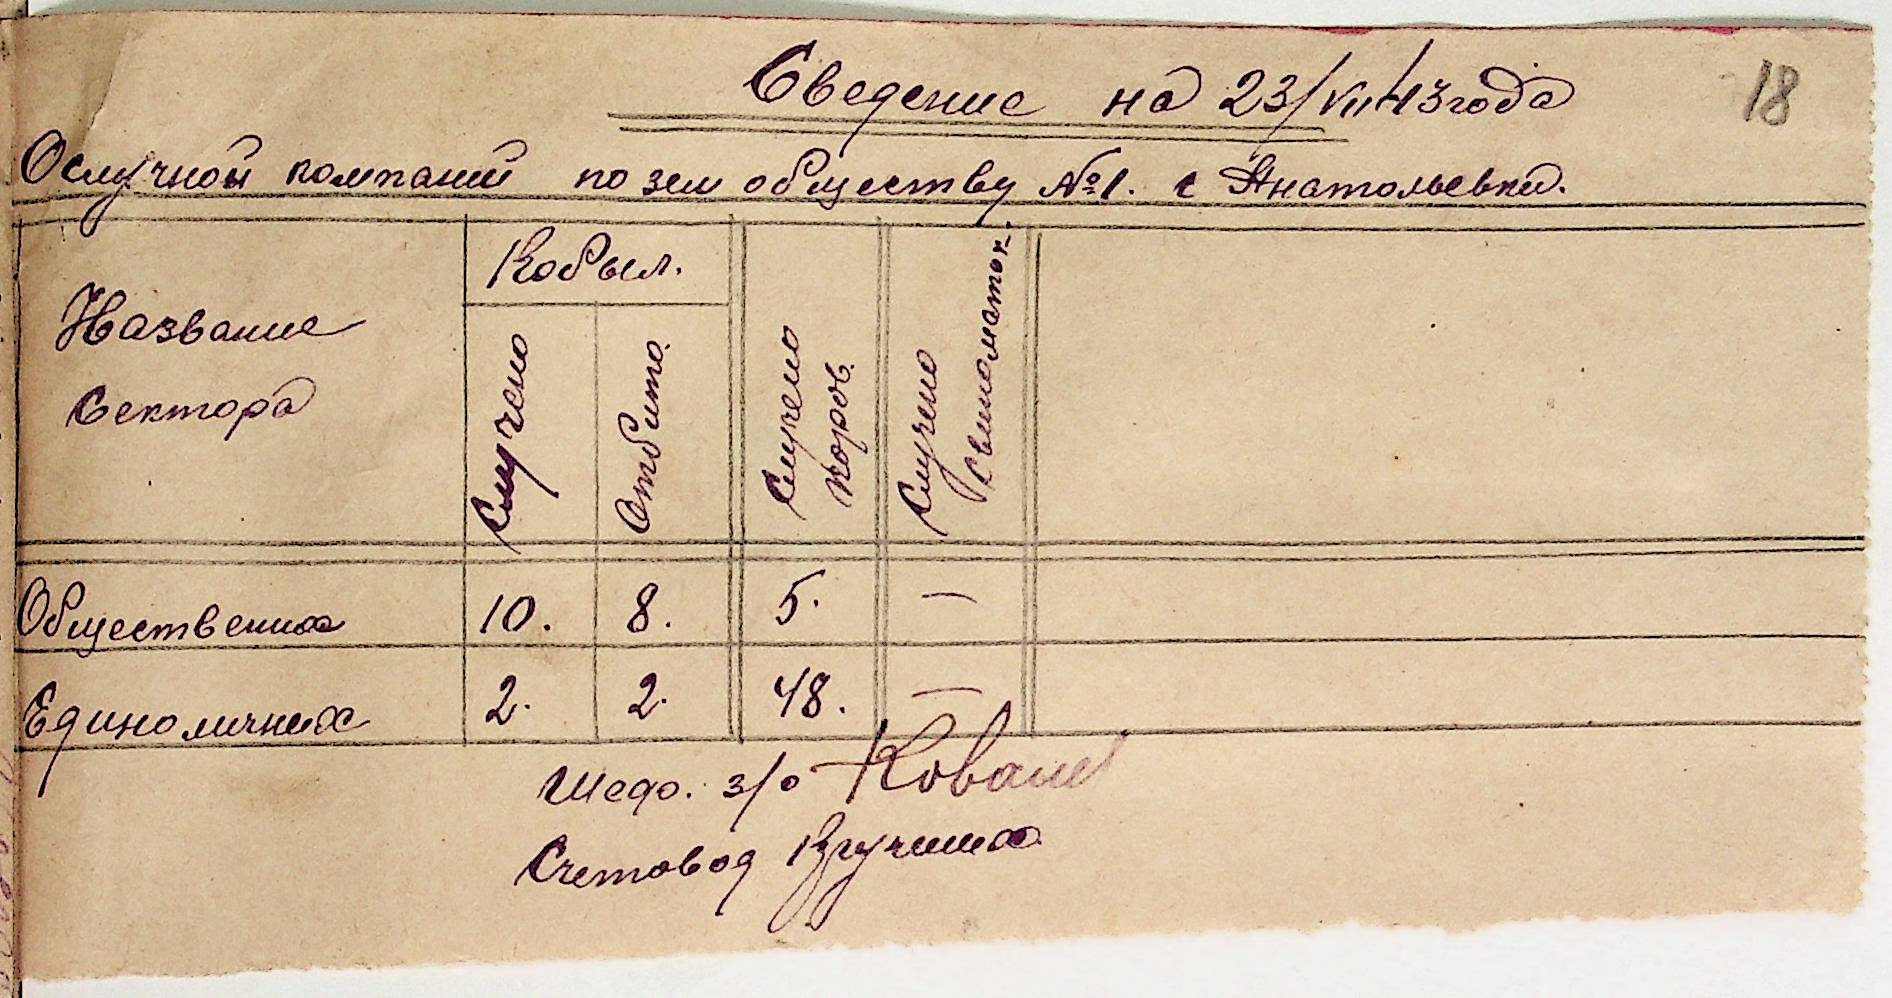 18
Сведение на 23/VII 43 года
О случной компании по зем обществу №1. с Анатольевки.
Название
Сектора
Кобыл.
Случено
Отбито.
Случено
коров.
Случено
Свиноматок.
Общественных 10. 8. 5. —
Единоличних 2. 2. 48. —
з/о Ковал
Счетовод